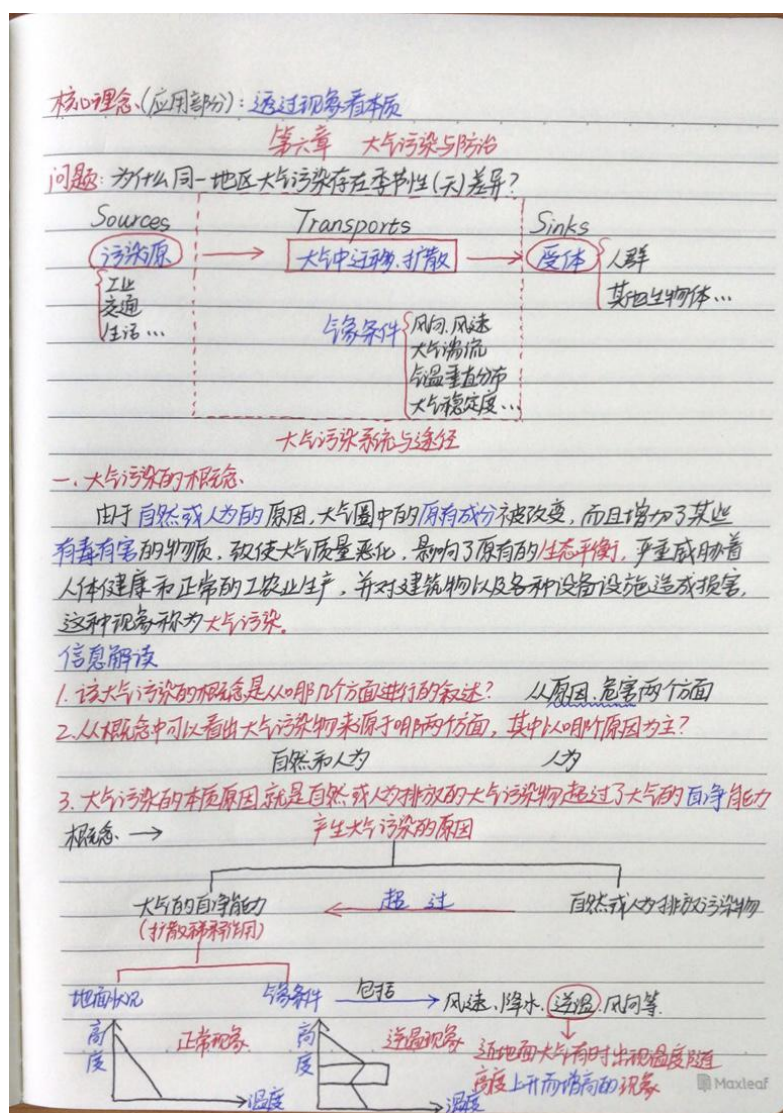 核心理念(应用部分):透过现象看本质
第六章 大气污染与防治
问题:为什么同一地区大气污染存在季节性(天)差异?
Sources Transports Sinks
污染源 大气中迁移、扩散 受体
人群
其他生物体…
工业
交通
生活…
气象条件
风向、风速
大气湍流
气温垂直分布
大气稳定度…
大气污染系统与途径
一、大气污染的概念
由于自然或人为的原因,大气圈中的原有成分被改变,而且增加了某些
有毒有害的物质,致使大气质量恶化,影响了原有的生态平衡,严重威胁着
人体健康和正常的工农业生产,并对建筑物以及各种设备设施造成损害,
这种现象称为大气污染。
信息解读
1.该大气污染的概念是从哪几个方面进行的叙述? 从原因、危害两个方面
2.从概念中可以看出大气污染物来源于哪两个方面,其中以哪个原因为主?
自然和人为 人为
3.大气污染的本质原因就是自然或人为排放的大气污染物超过了大气的自净能力
概念 → 产生大气污染的原因
大气的自净能力 超过 自然或人为排放污染物
(扩散稀释作用)
地面状况 气象条件 包括 风速、降水、逆温、风向等
高度 正常现象 温度
高度 逆温现象 温度
近地面大气有时出现温度随
高度上升而增高的现象
Maxleaf